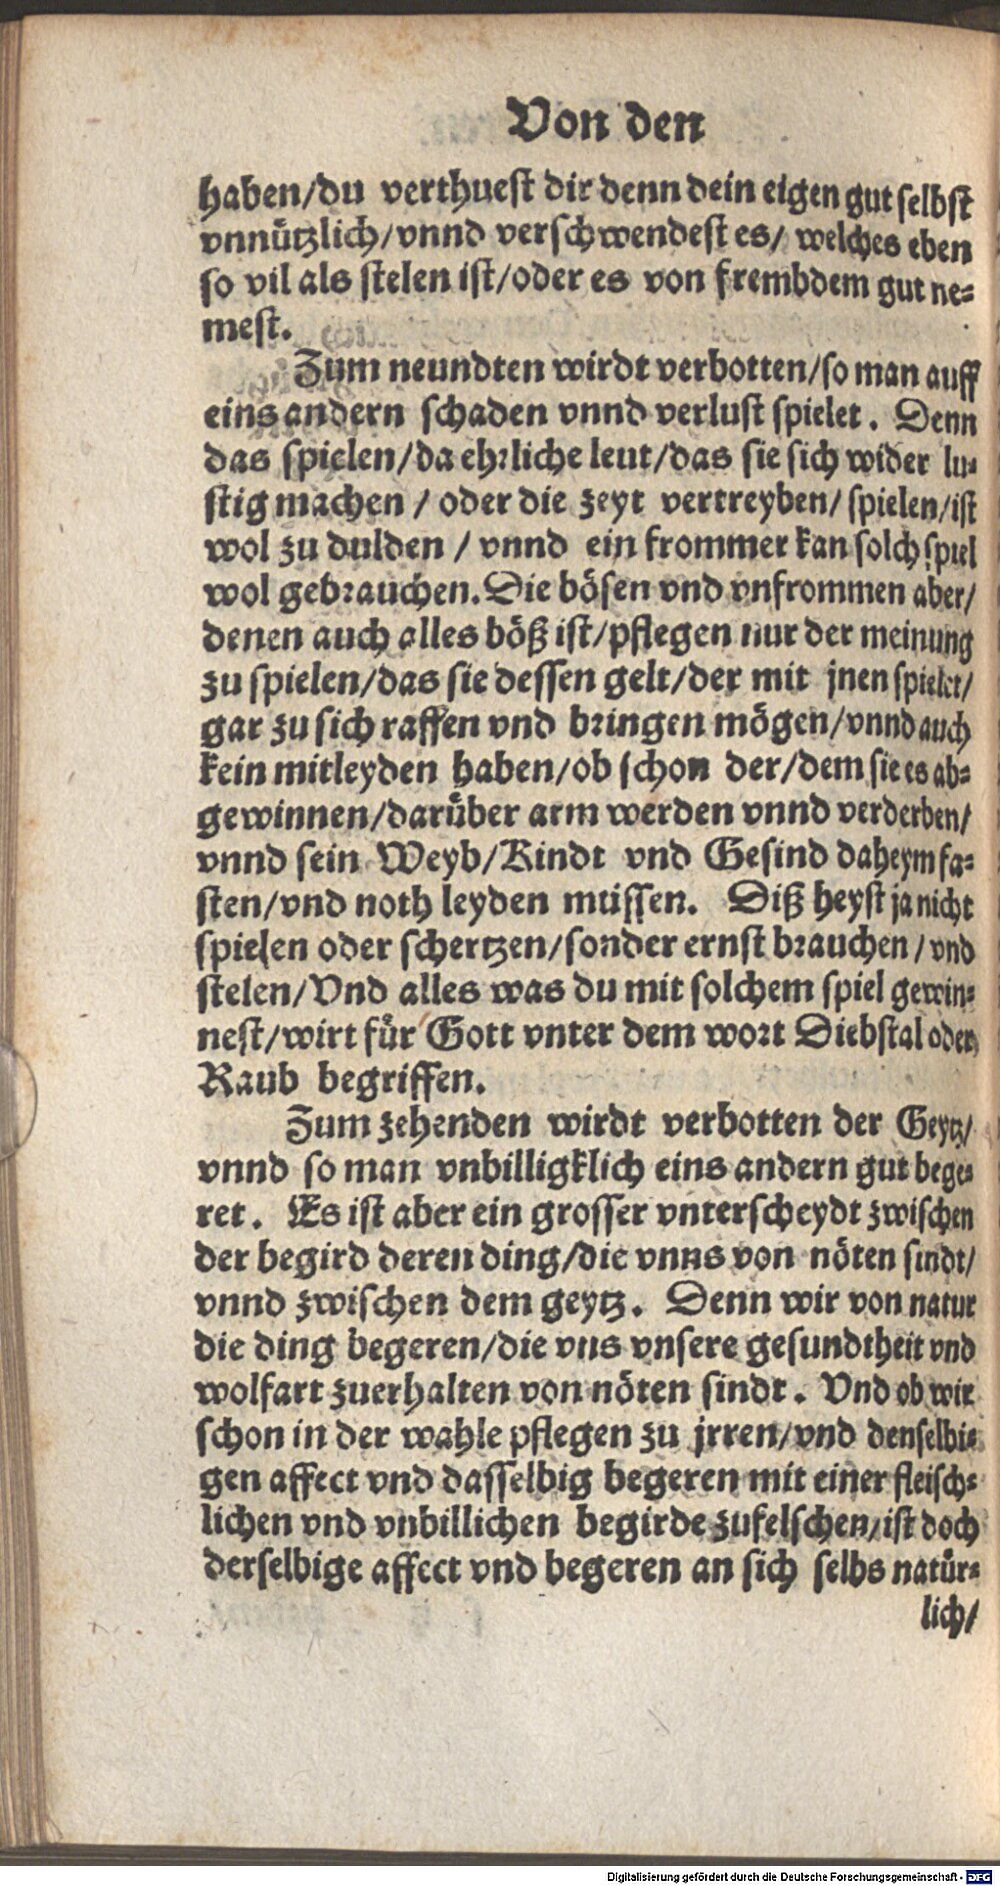 Von den
haben/du verthuest dir denn dein eigen gut selbst
vnnützlich/vnnd verschwendest es/ welches eben
so vil als stelen ist/oder es von frembdem gut ne-
mest.
Zum neundten wirdt verbotten/so man auff
eins andern schaden vnnd verlust spielet. Denn
das spielen/da ehrliche leut/das sie sich wider lu-
stig machen / oder die zeyt vertreyben/ spielen/ist
wol zu dulden / vnnd ein frommer kan solch spiel
wol gebrauchen. Die bösen vnd vnfrommen aber/
denen auch alles böß ist/pflegen nur der meinung
zu spielen/das sie dessen gelt/der mit jnen spielet/
gar zu sich raffen vnd bringen mögen/vnnd auch
kein mitleyden haben/ob schon der/dem sie es ab-
gewinnen/darüber arm werden vnnd verderben/
vnnd sein Weyb/Kindt vnd Gesind daheym fa-
sten/vnd noth leyden müssen. Diß heyst ja nicht
spielen oder schertzen/sonder ernst brauchen/vnd
stelen/Vnd alles was du mit solchem spiel gewin-
nest/wirt für Gott vnter dem wort Diebstal oder
Raub begriffen.
Zum zehenden wirdt verbotten der Geytz/
vnnd so man vnbilligklich eins andern gut bege-
ret. Es ist aber ein grosser vnterscheydt zwischen
der begird deren ding/die vnns von nöten sindt/
vnnd zwischen dem geytz. Denn wir von natur
die ding begeren/die vns vnsere gesundtheit vnd
wolfart zuerhalten von nöten sindt. Vnd ob wir
schon in der wahle pflegen zu jrren/vnd denselbi-
gen affect vnd dasselbig begeren mit einer fleisch-
lichen vnd vnbillichen begirde zufelschen/ist doch
derselbige affect vnd begeren an sich selbs natür-
lich/
Digitalisierung gefördert durch die Deutsche Forschungsgemeinschaft - DFG